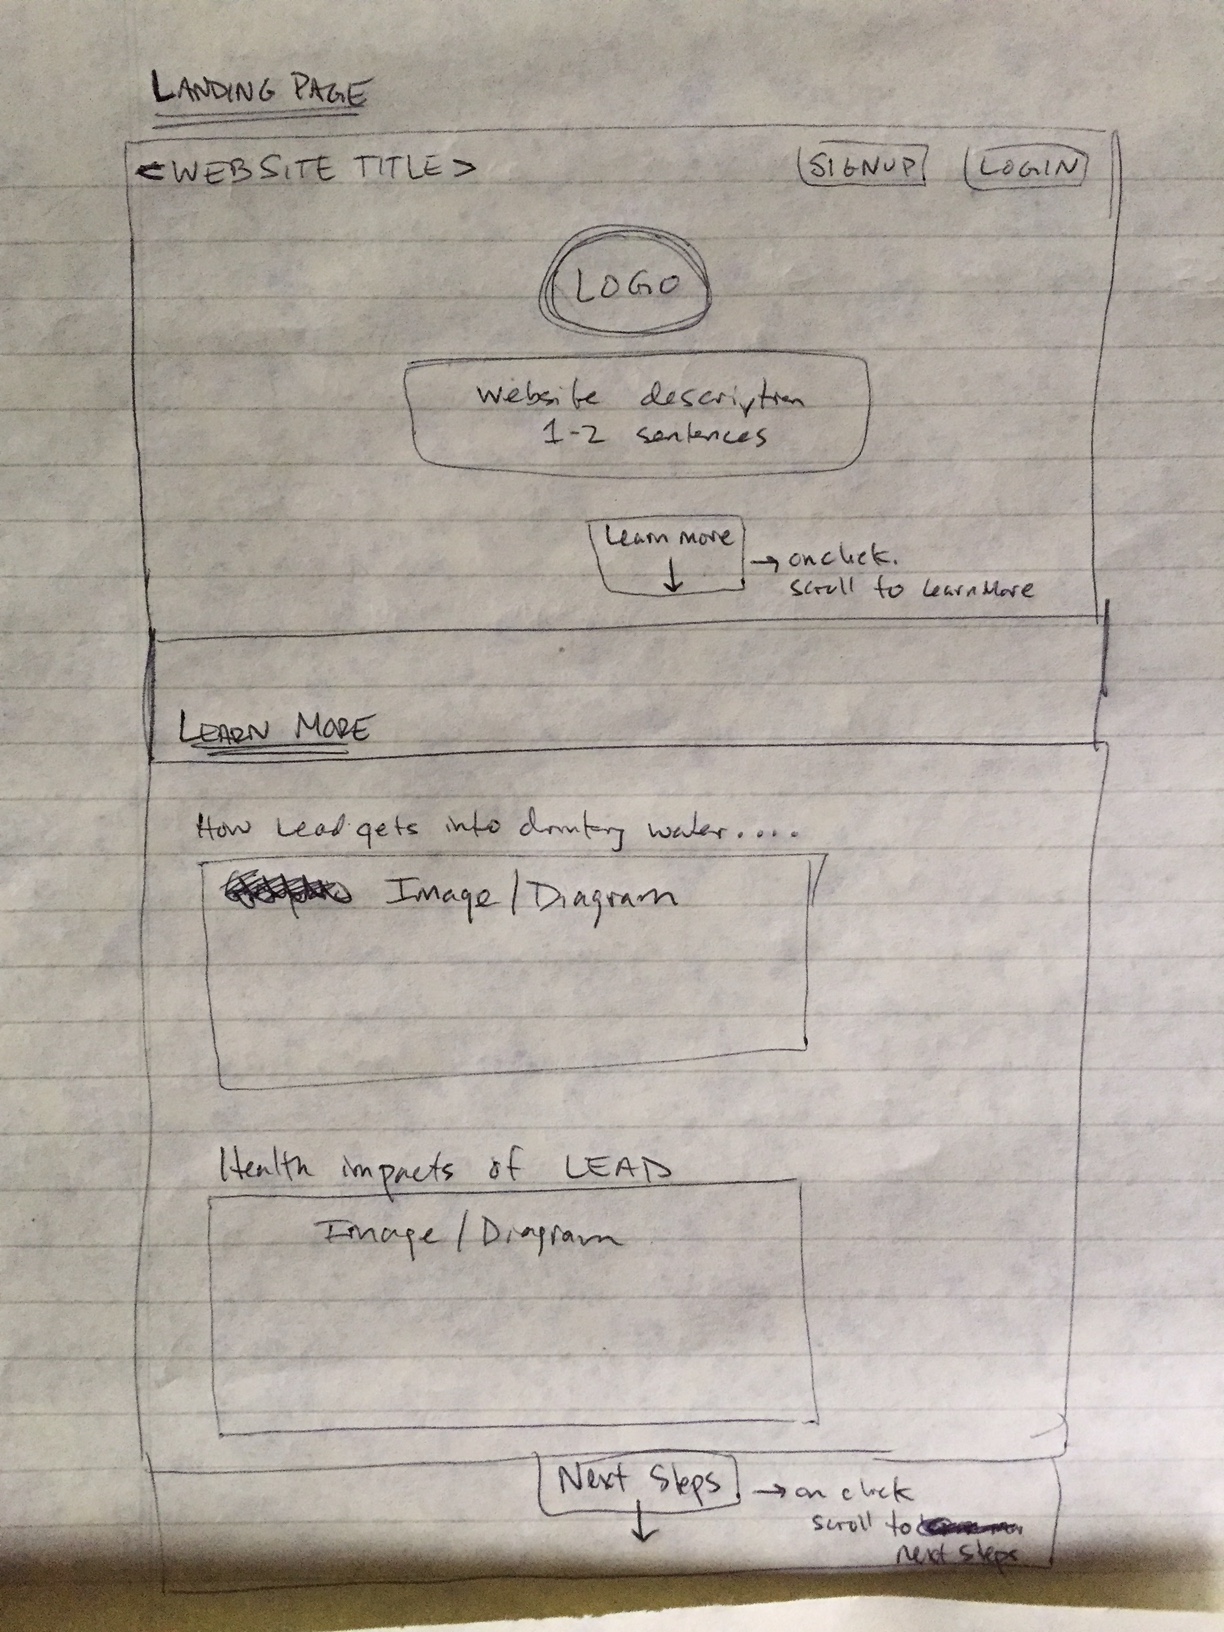 LANDING PAGE
<WEBSITE TITLE> SIGNUP LOGIN
LOGO
Website description
1-2 sentences
Learn More
→ on click.
scroll to LearnMore
LEARN MORE
How Lead gets into drinking water....
Image/Diagram
Health impacts of LEAD
Image/Diagram
Next Steps → on click
scroll to
next steps